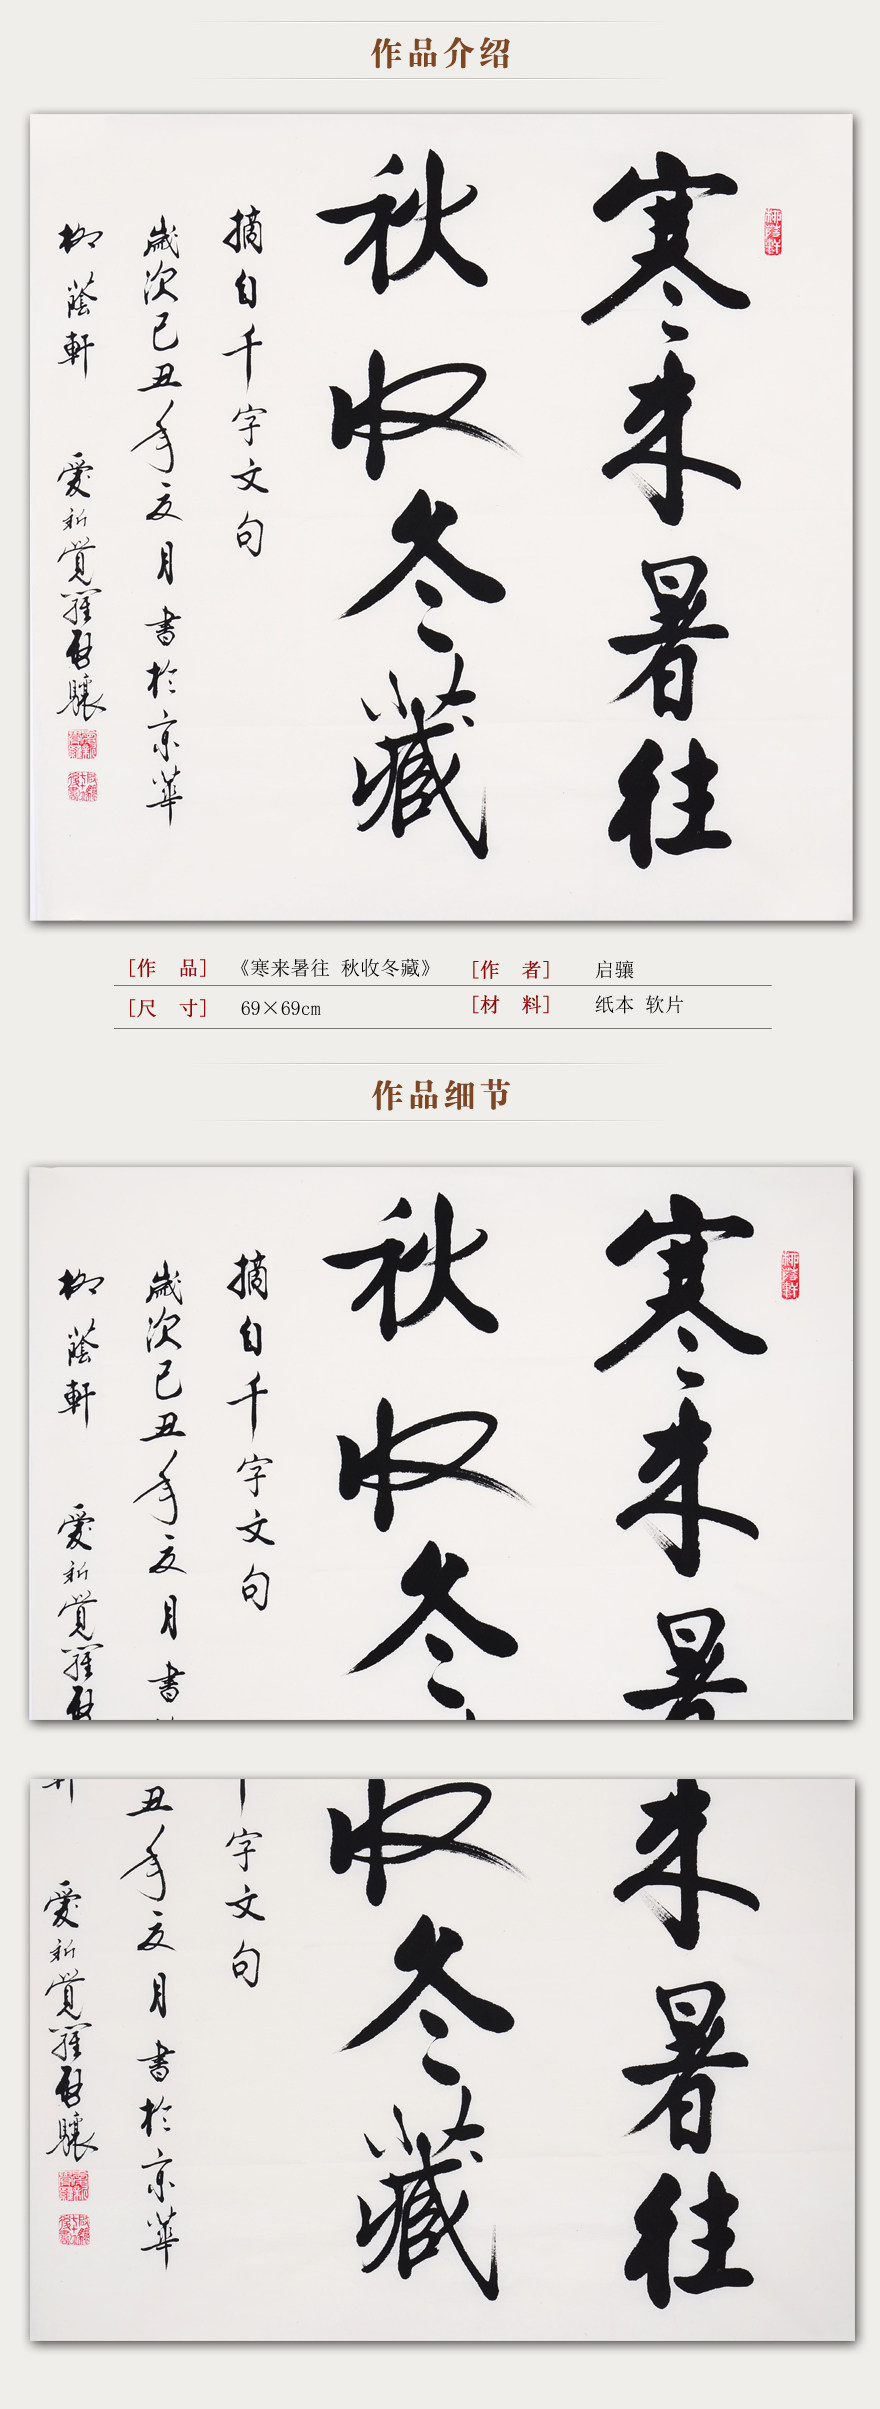 作品介绍
寒来暑往
秋收冬藏
摘自千字文句
歲次己丑年亥月書於京華
柳蔭軒 愛新覺羅啟驤
柳蔭軒
[作 品] 《寒来暑往 秋收冬藏》 [作 者] 启骧
[尺 寸] 69×69cm [材 料] 纸本 软片
作品细节
寒来暑
秋收冬
摘自千字文句
歲次己丑年亥月書
柳蔭軒 愛新覺羅啟
柳蔭軒
来暑往
收冬藏
字文句
丑年亥月書於京華
軒 愛新覺羅啟驤